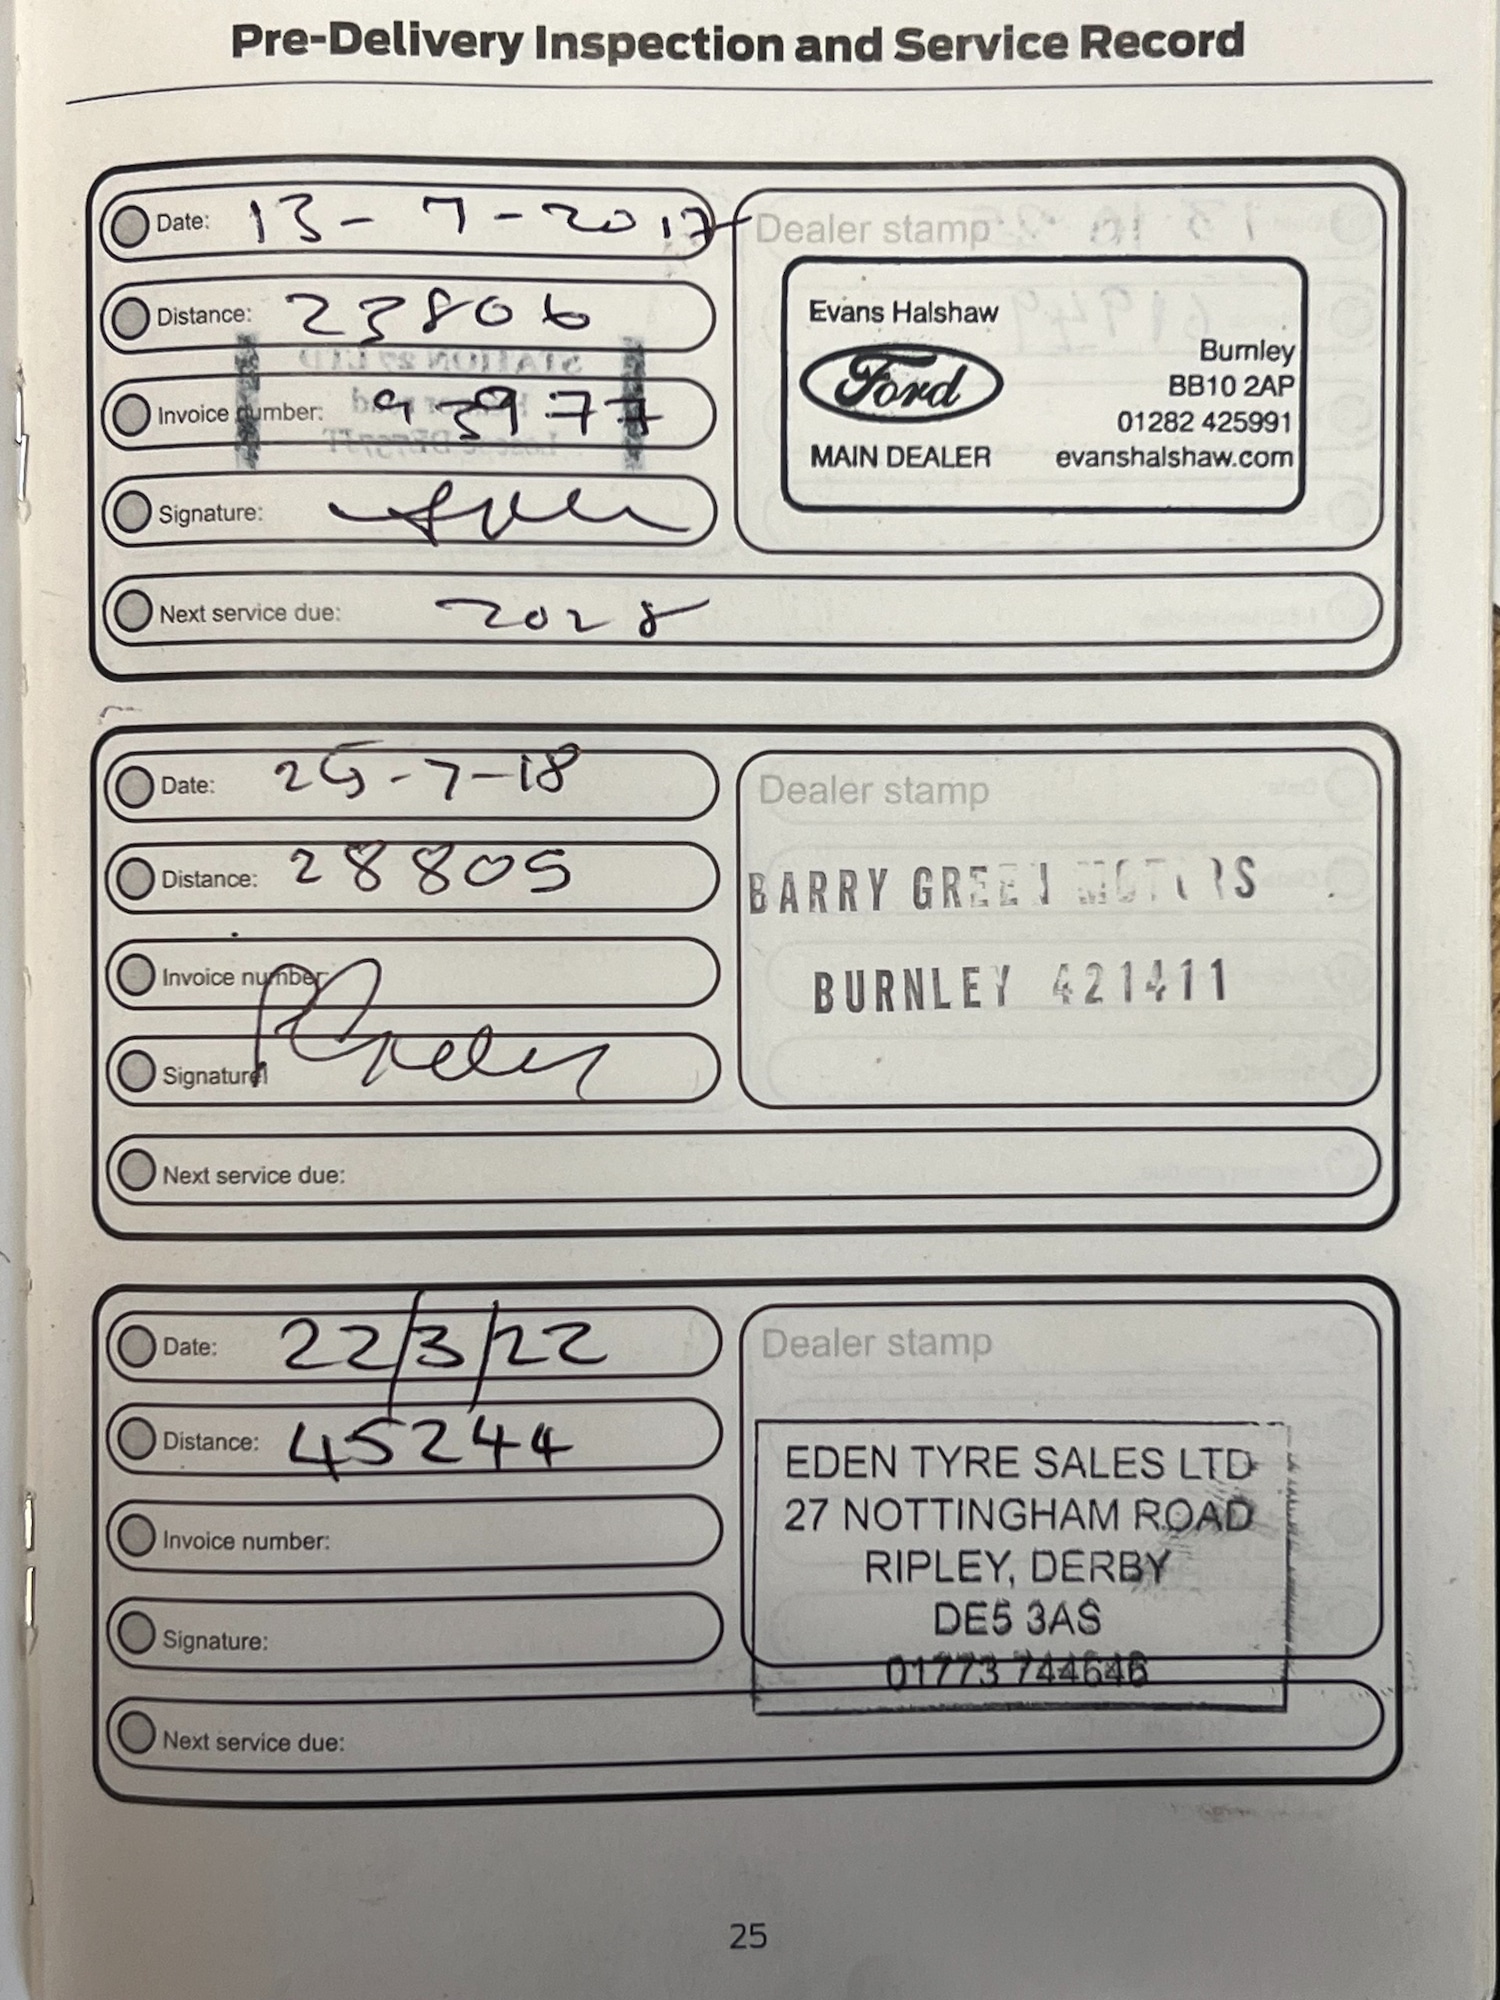 Pre-Delivery Inspection and Service Record
Date: 13-7-2017
Dealer stamp
Distance: 23806
Invoice number: 93977
Signature:
Next service due: 2028
Evans Halshaw
Ford
MAIN DEALER
Burnley
BB10 2AP
01282 425991
evanshalshaw.com
Date: 25-7-18
Dealer stamp
Distance: 28805
Invoice number
Signature
Next service due:
BARRY GREEN MOTORS
BURNLEY 421411
Date: 22/3/22
Dealer stamp
Distance: 45244
Invoice number:
Signature:
Next service due:
EDEN TYRE SALES LTD
27 NOTTINGHAM ROAD
RIPLEY, DERBY
DE5 3AS
01773 744646
25